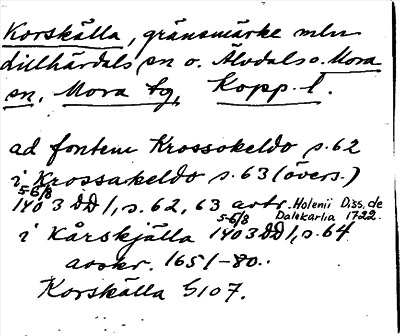 Korskälla, gränsmärke mln
Lillhärdals sn o. Älvdals o. Mora
sn, Mora tg, Kopp. l.
ad fontem Krossokeldo s. 62
i Krossakeldo s. 63 (övers.)
5-6/8
1403 DD 1, s. 62, 63 avtr. Holenii Diss. de
Dalekarlia 1722.
5-6/8
i Kårskjälla 1403 DD 1, s. 64
avskr. 1651-80.
Korskälla G107.